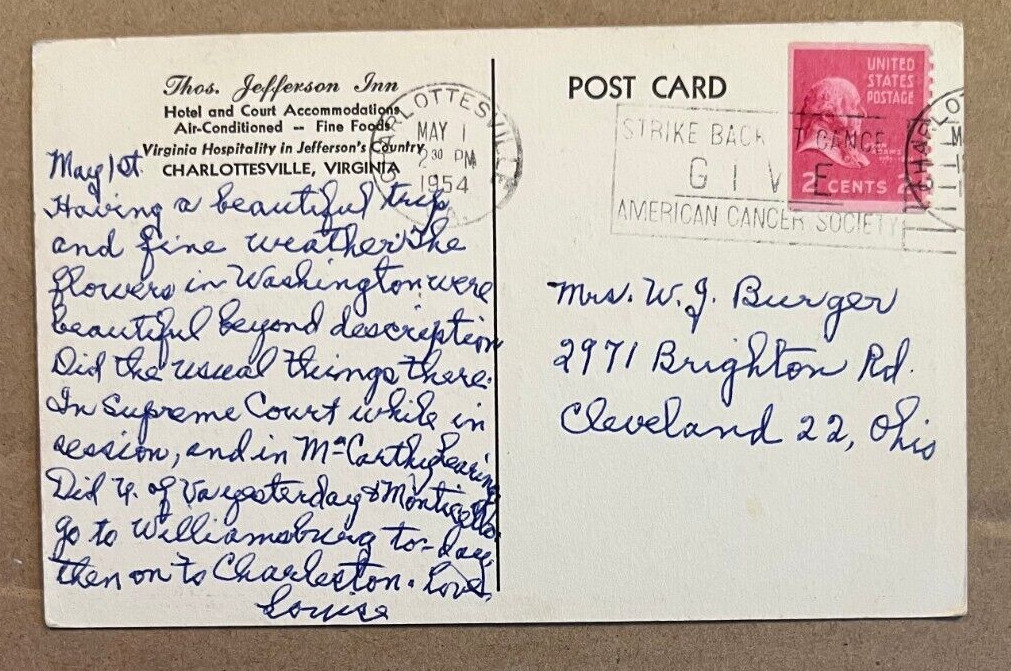 Thos. Jefferson Inn
Hotel and Court Accommodations
Air-Conditioned -- Fine Foods
Virginia Hospitality in Jefferson's Country
CHARLOTTESVILLE, VIRGINIA
May 1st.
Having a beautiful trip
and fine weather. The
flowers in Washington were
beautiful beyond description
Did the usual things there.
In Supreme Court while in
session, and in McCarthy hearing
Did U. of Va yesterday & Monticello
go to Williamsburg to-day,
then on to Charleston. Love,
Louise
CHARLOTTESVILLE
MAY 1
2 30 PM
1954
VA.
POST CARD
STRIKE BACK AT CANCER
GIVE
AMERICAN CANCER SOCIETY
UNITED
STATES
POSTAGE
JOHN ADAMS
2 CENTS 2
CHARLO
Mrs. W. J. Burger
2971 Brighton Rd.
Cleveland 22, Ohio